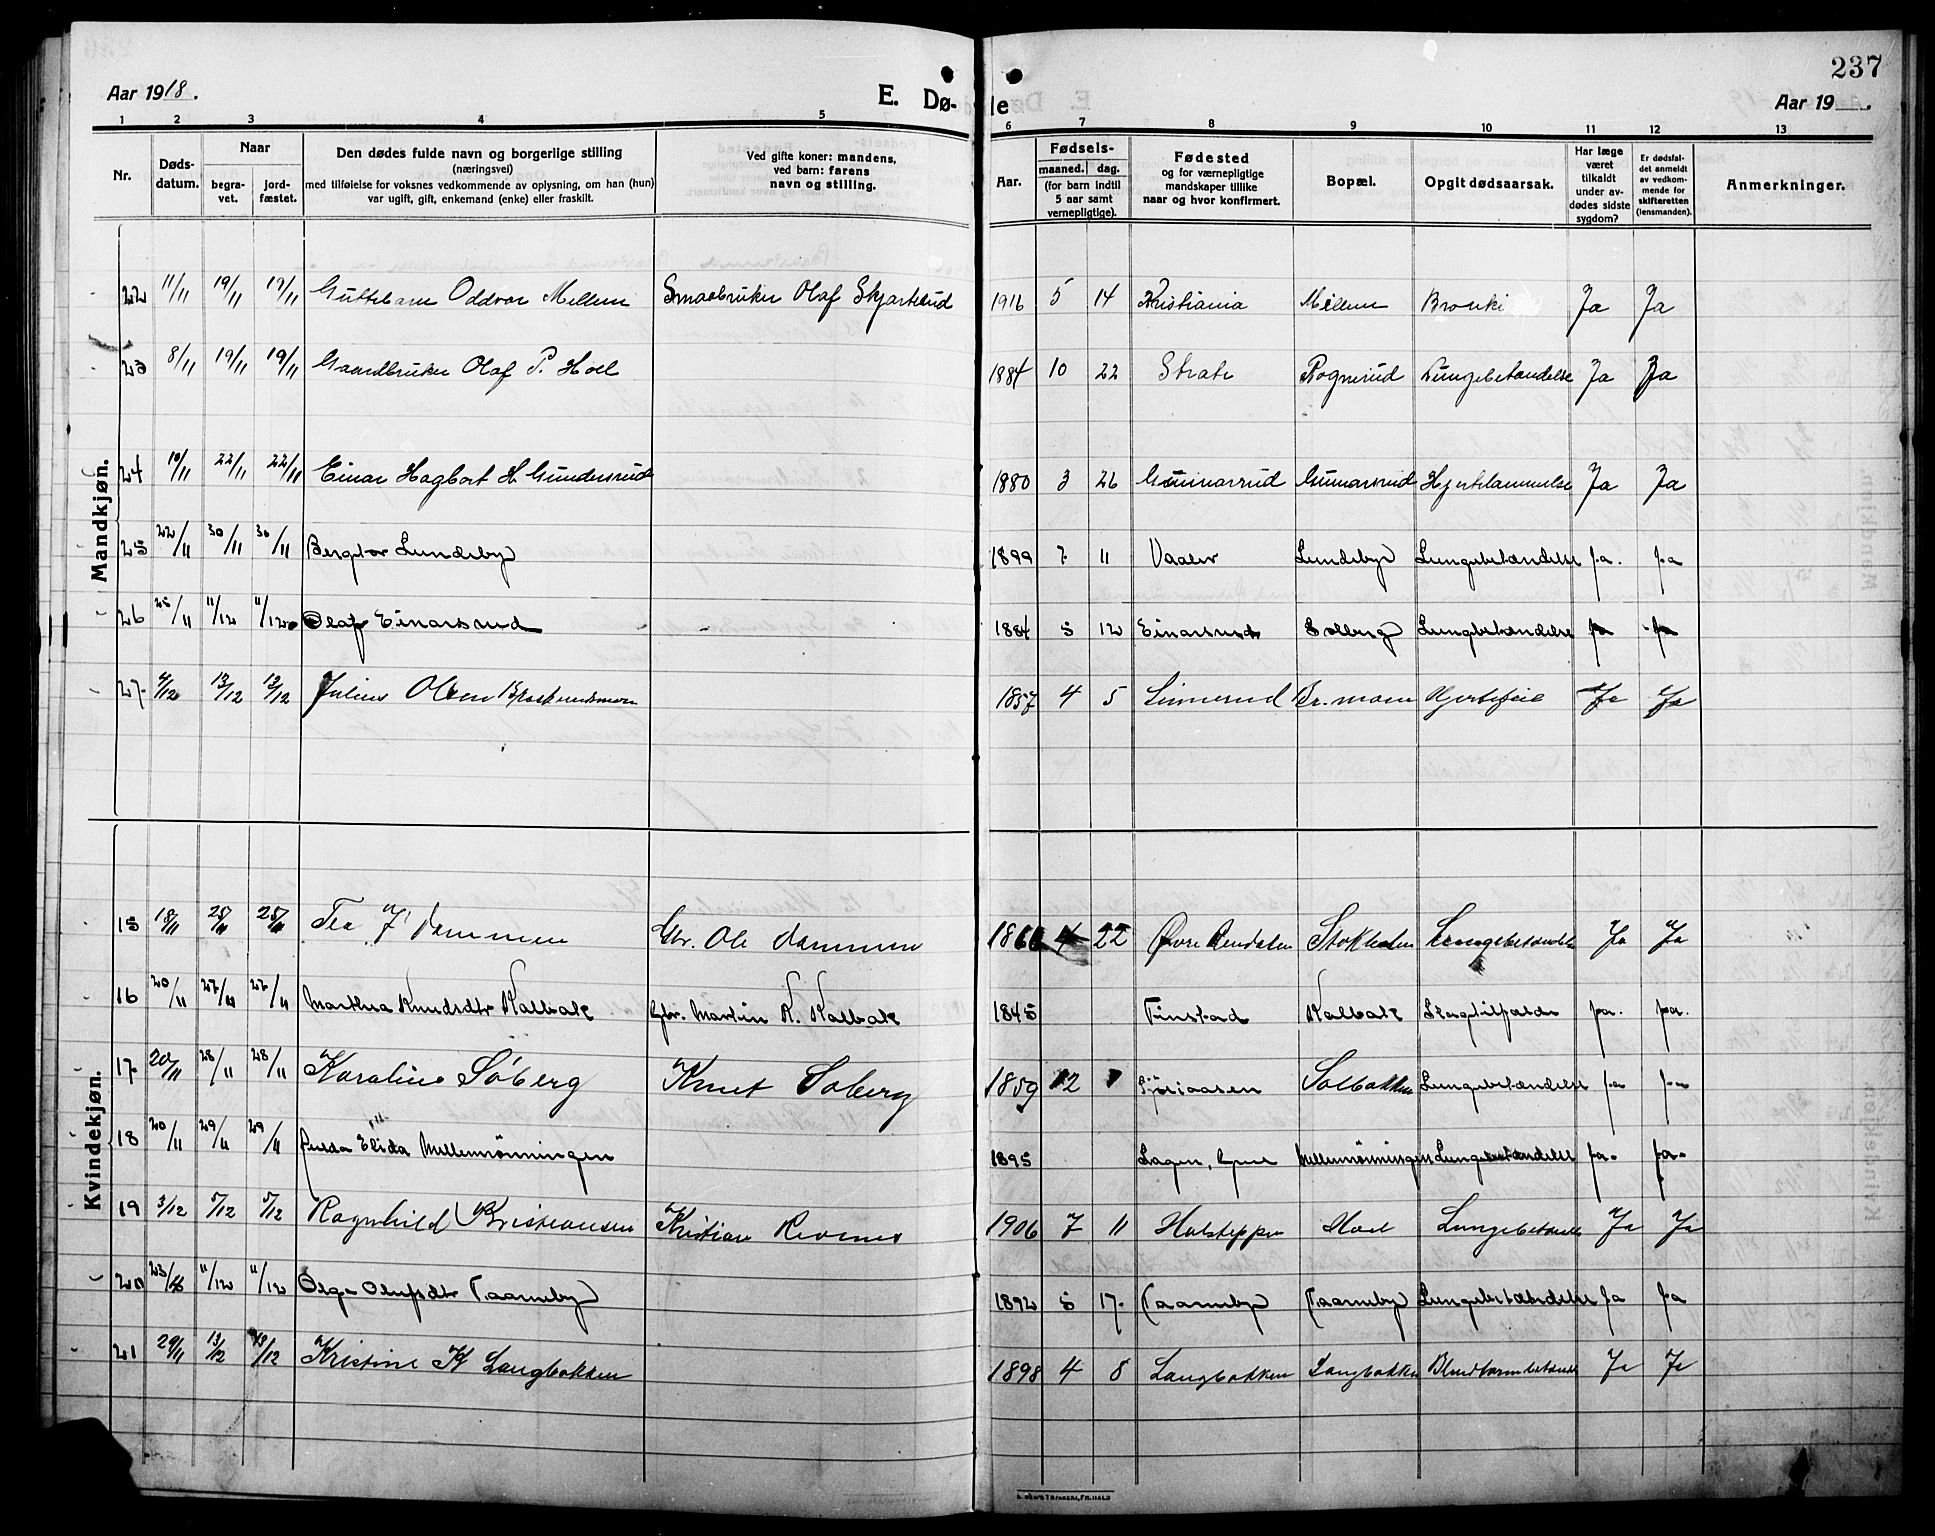 237
Aar 1918.
E. Dø-
de
Aar 19 .
1 2 3 4 5 6 7 8 9 10 11 12 13
Nr.
Døds-
datum.
Naar
begra-
vet.
jord-
fæstet.
Den dødes fulde navn og borgerlige stilling
(næringsvei)
med tilføielse for voksnes vedkommende av oplysning, om han (hun)
var ugift, gift, enkemand (enke) eller fraskilt.
Ved gifte koner: mandens,
ved barn: farens
navn og stilling.
Aar.
Fødsels-
maaned. dag.
(for barn indtil
5 aar samt
vernepligtige).
Fødested
og for værnepligtige
mandskaper tillike
naar og hvor konfirmert.
Bopæl.
Opgit dødsaarsak.
Har læge
været
tilkaldt
under av-
dødes sidste
sygdom?
Er dødsfal-
det anmeldt
av vedkom-
mende for
skifteretten
(lensmanden).
Anmerkninger.
Mandkjøn.
22 11/11 19/11 19/11 Guttebarn Oddvar Mellem Smaabruker Olaf Skjartrud 1916 5 14 Kristiania Mellem Bronki Ja Ja
23 8/11 19/11 19/11 Gaardbruker Olaf P. Hoel 1884 10 22 Strate Rognerud Lungebetændelse Ja Ja
24 10/11 22/11 22/11 Einar Hagbart H. Gundersrud 1880 3 26 Gunnarsrud Gunnarsrud Hjertelammelse Ja Ja
25 22/11 30/11 30/11 Bergitor Lundeby 1899 7 11 Vaaler Lundeby Lungebetændelse ja. ja
26 25/11 11/12 11/12 Olaf Einarsrud 1884 5 12 Einarsrud Solberg Lungebetændelse ja ja
27. 4/12 13/12 13/12 Julius Olsen 1857 4 5 Linnerud Br.moen Hjertefeil Ja Ja
Kvindekjøn.
15 18/11 25/11 25/11 Tea J Dammen Gbr. Ole Dammen 4 22 Øvre Rendalen Stokholen Lungebetændelse Ja Ja
16 20/11 27/11 27/11 Marthea Knudsdtr Kalbak Gbr. Martin K. Kalbak 1845 Finstad Kalbak Slagtilfælde ja. ja.
17. 20/11 28/11 28/11 Karoline Söberg Knut Soberg 1859 12 Solbakken Lungebetændelse ja ja
18 20/11 29/11 29/11 Elida Mellemrönningen 1895 Mellemrönningen Lungebetændelse ja. ja.
19 3/12 7/12 7/12 Ragnhild Kristiansen Kristian 1906 7 11 Lungebetænd. Ja Ja
20 11/12 11/12 Olga Olufsdtr Taarneby 1892 5 17. Taarneby Taarneby Lungebetændelse ja ja
21 29/11 13/12 13/12 Kristine K Langbakken 1898 4 8 Langbakken Langbakken Ja Ja